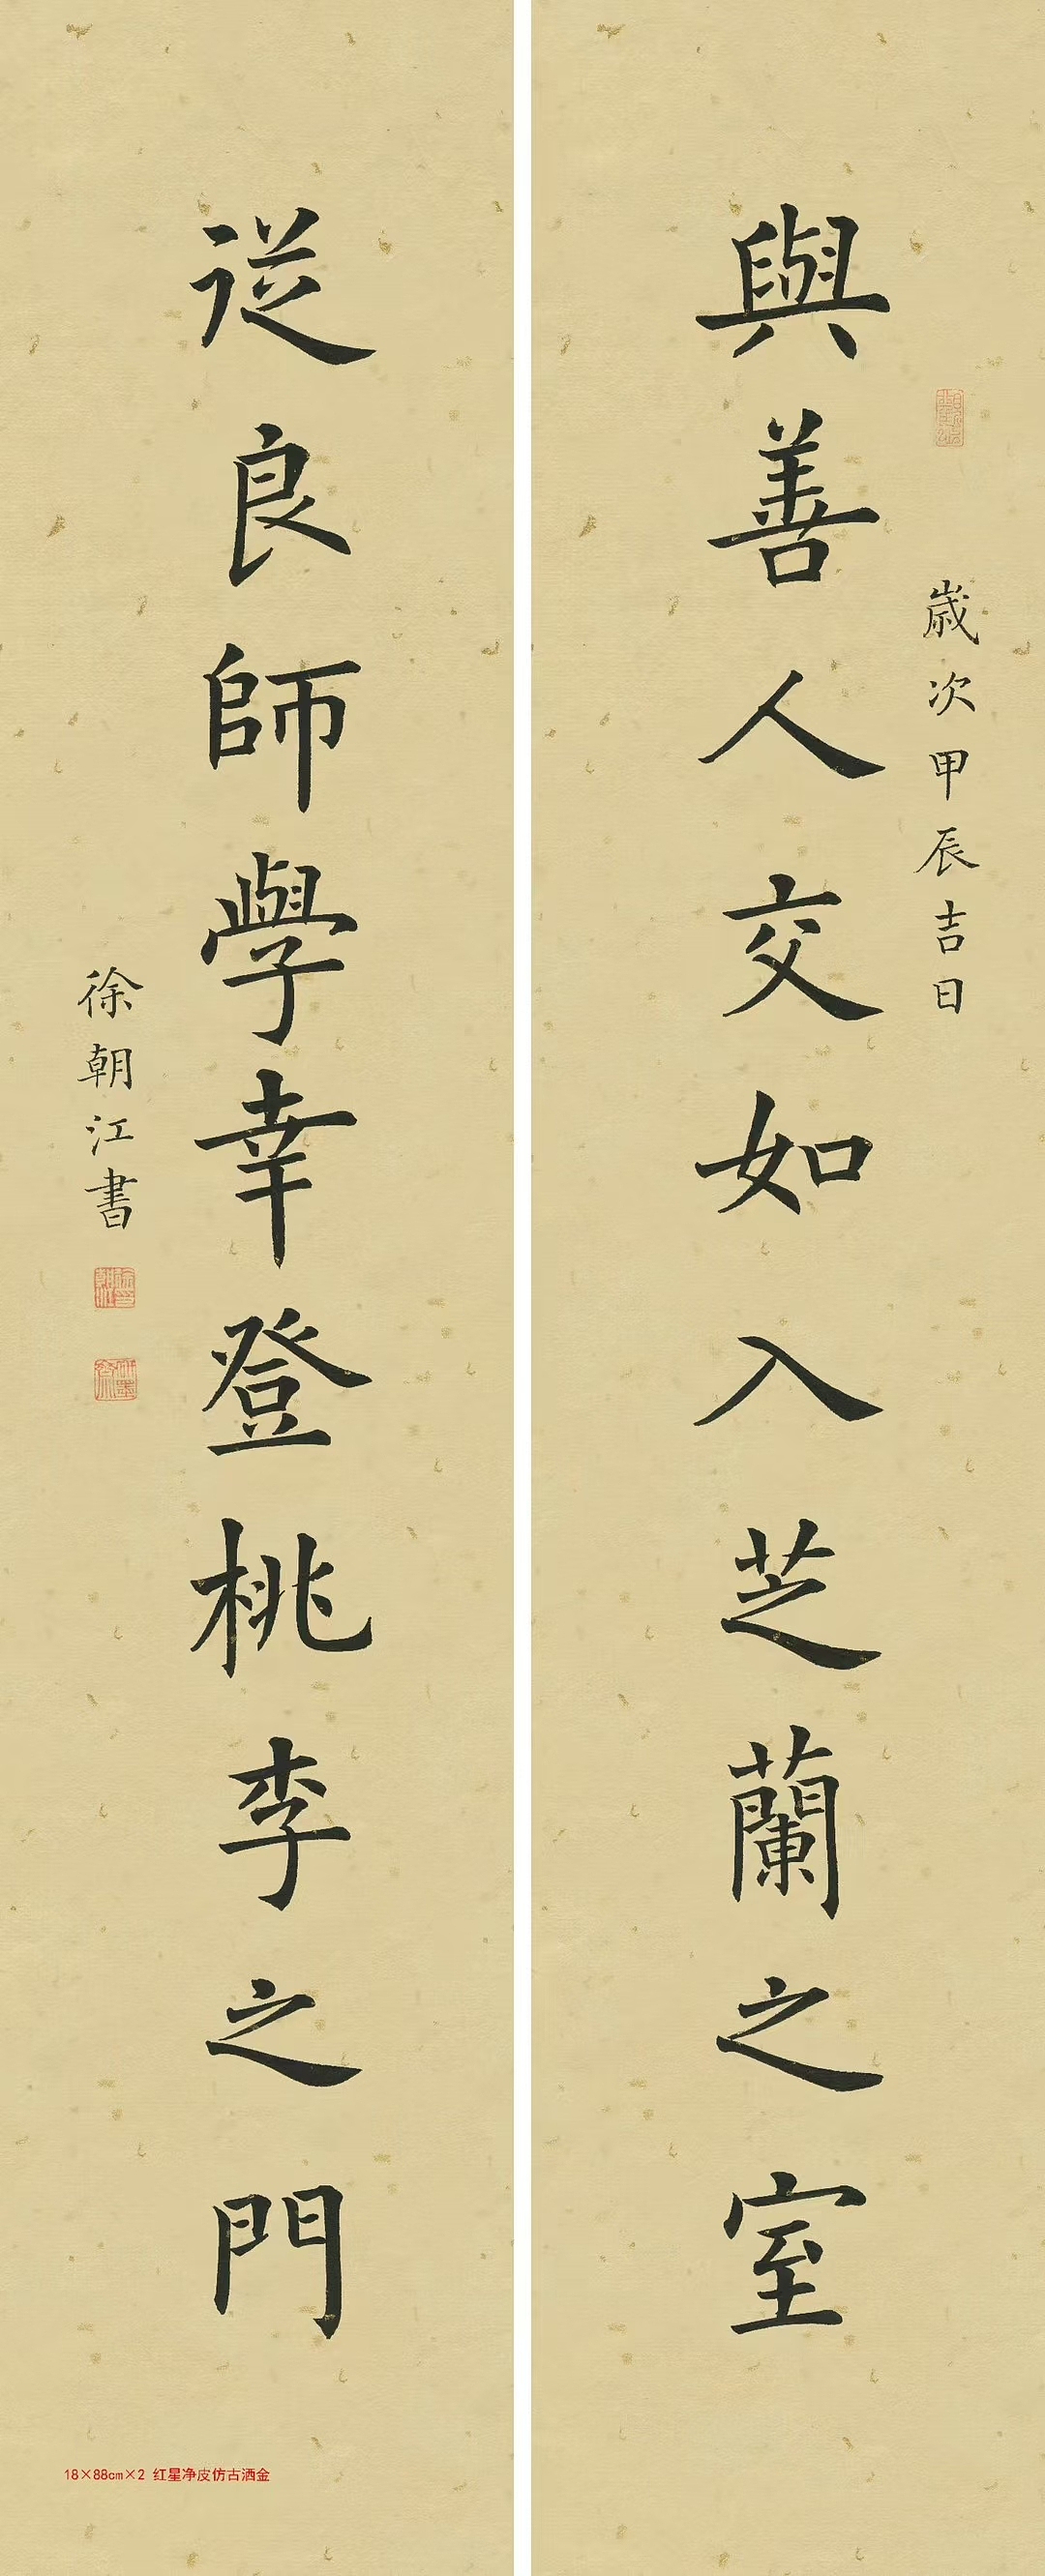 與善人交如入芝蘭之室
歲次甲辰吉日
從良師學幸登桃李之門
徐朝江書
18×88cm×2 红星净皮仿古洒金